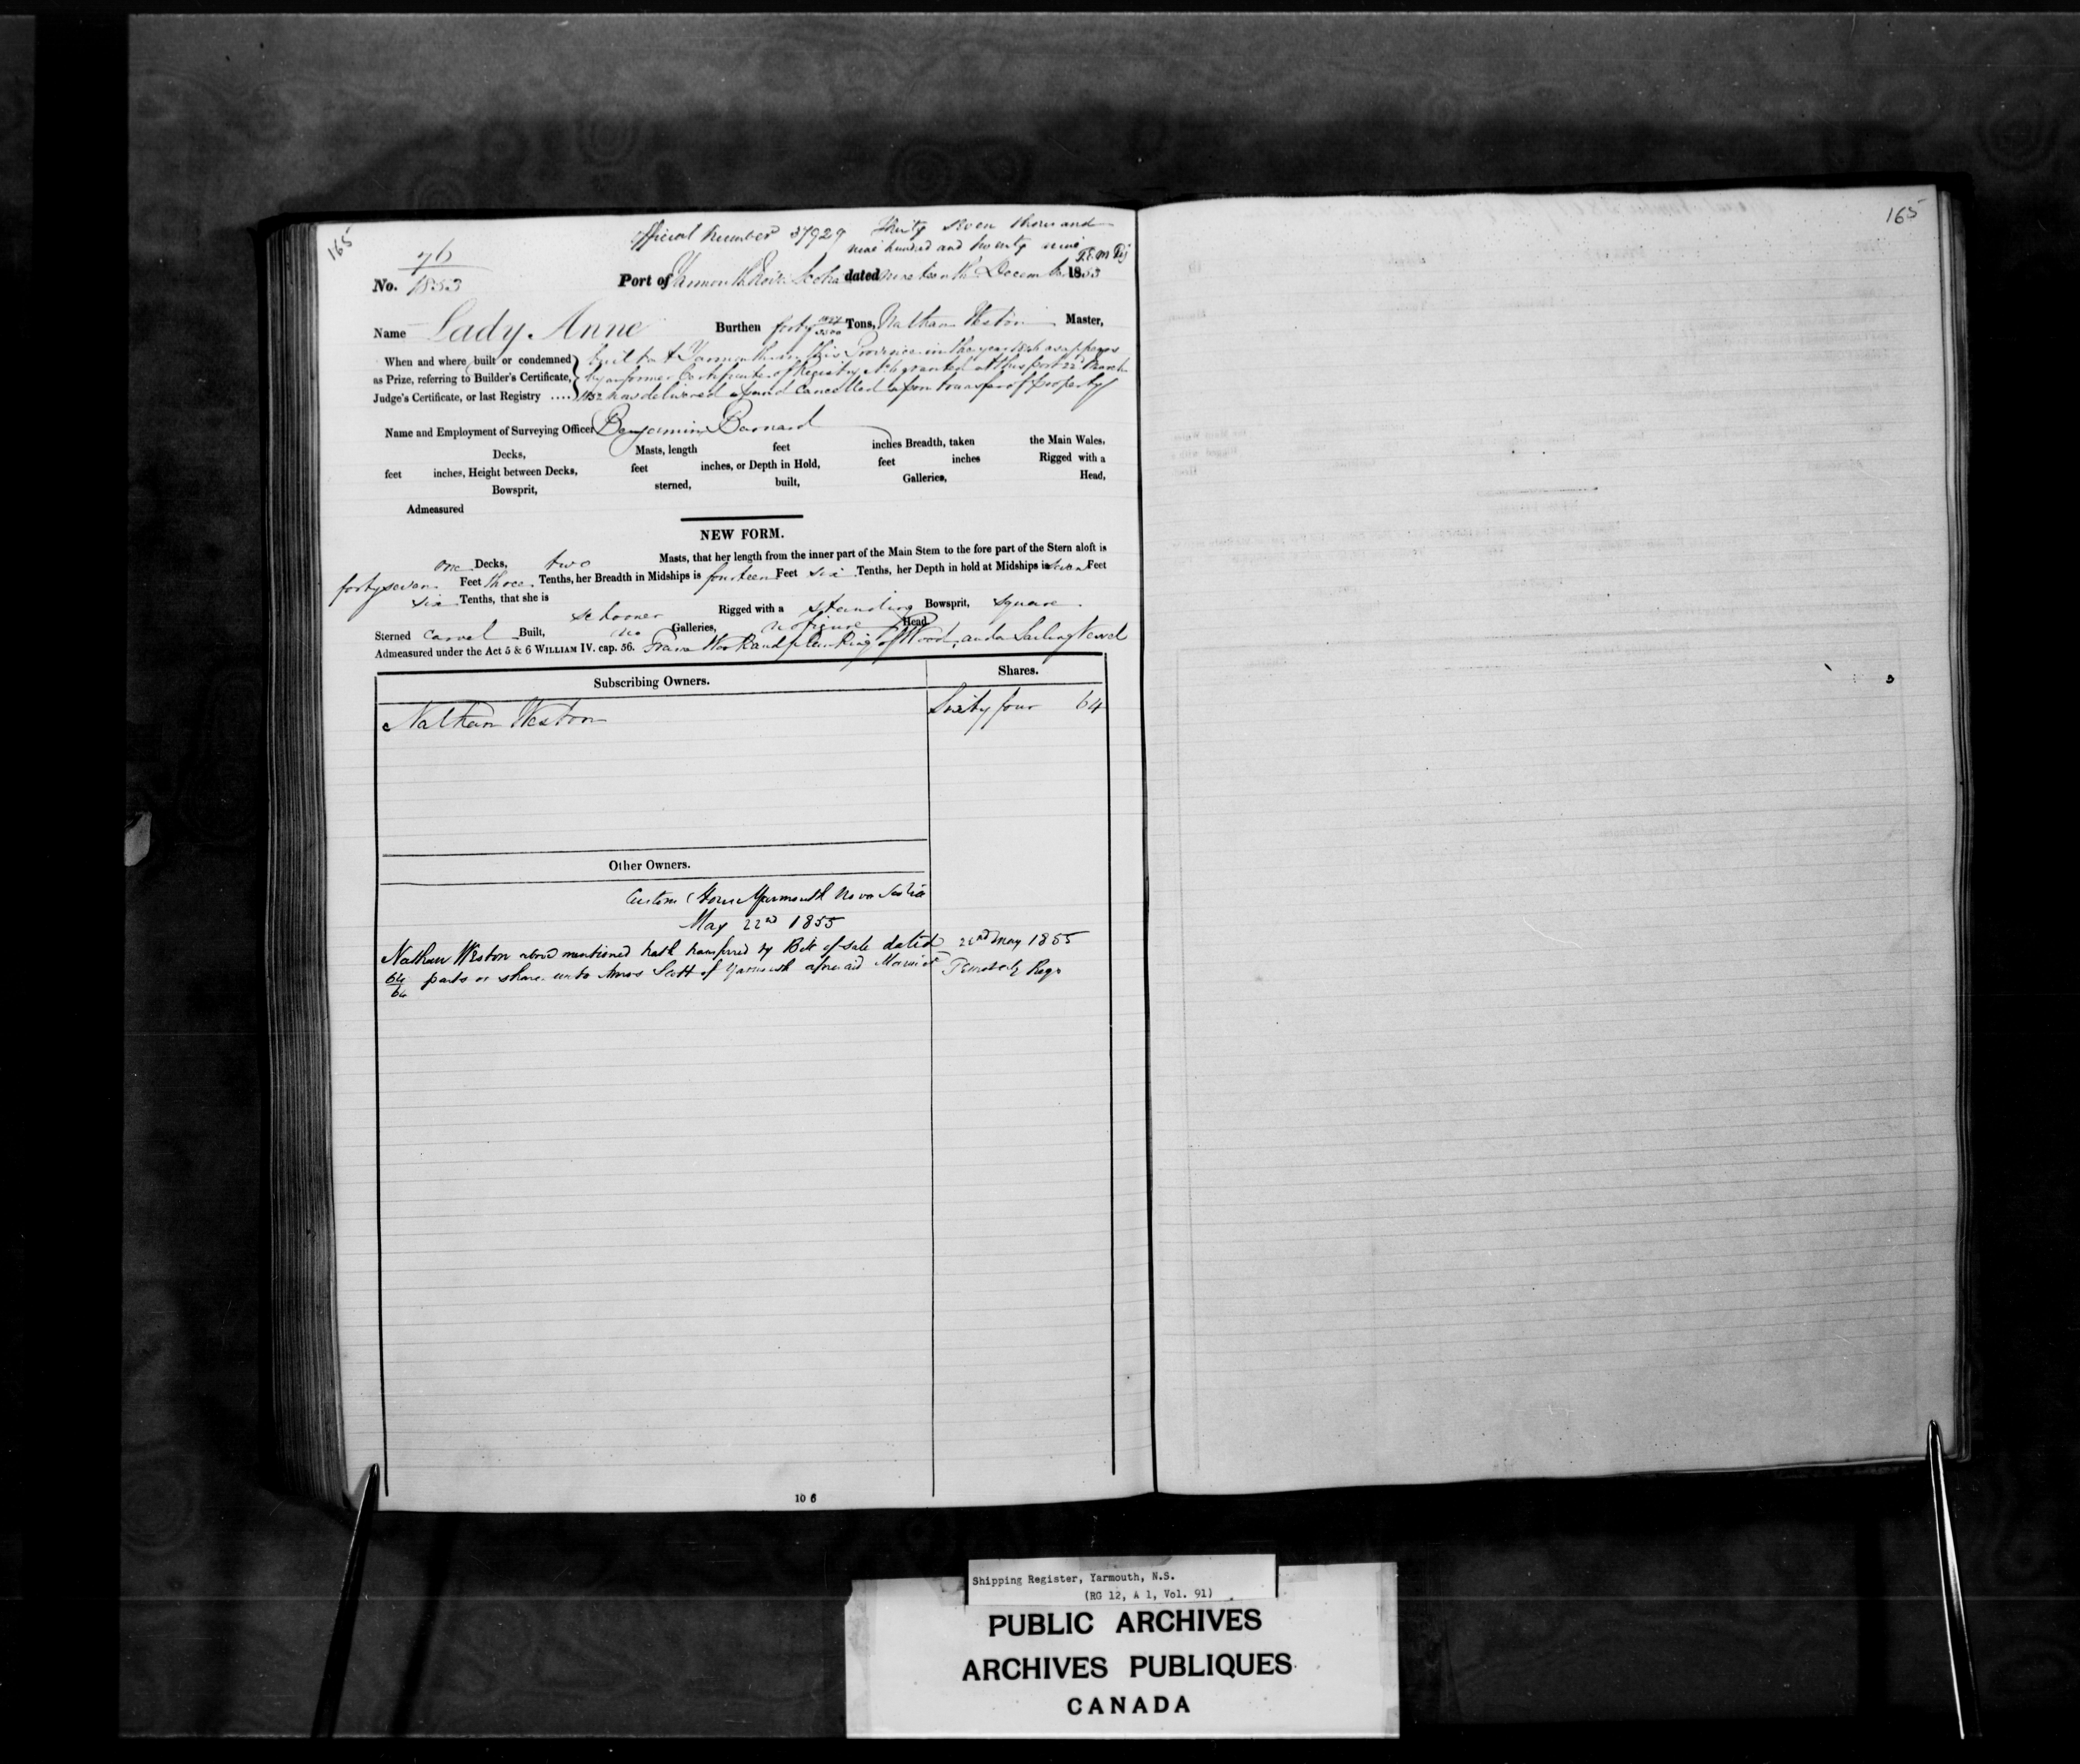 165
Official Number 37929 Thirty seven thousand
nine hundred and twenty nine
No. 76/1853
Port of Yarmouth Nova Scotia dated nineteenth December 1853
Name Lady Anne Burthen forty Tons, Nathan Weston Master,
When and where built or condemned built at Yarmouth in this Province in the year as appears
as Prize, referring to Builder's Certificate, by a former Certificate of Registry No 6 granted at this port 22d March
Judge's Certificate, or last Registry .... 1852 now delivered up and Cancelled upon transfer of property
Name and Employment of Surveying Officer Benjamin Barnard
Decks, Masts, length feet inches Breadth, taken the Main Wales,
feet inches, Height between Decks, feet inches, or Depth in Hold, feet inches Rigged with a
Bowsprit, sterned, built, Galleries, Head,
Admeasured
NEW FORM.
one Decks, two Masts, that her length from the inner part of the Main Stem to the fore part of the Stern aloft is
forty seven Feet three Tenths, her Breadth in Midships is fourteen Feet six Tenths, her Depth in hold at Midships is seven Feet
six Tenths, that she is schooner Rigged with a standing Bowsprit, square
Sterned Carvel Built, no Galleries, no figure Head
Admeasured under the Act 5 & 6 WILLIAM IV. cap. 56. Frame Work and planking of Wood, and a Sailing Vessel
Subscribing Owners. Shares.
Nathan Weston Sixty four 64
Other Owners.
Custom House Yarmouth Nova Scotia
May 22nd 1855
Nathan Weston above mentioned hath transferred by Bill of Sale dated 22nd May 1855
64/64 parts or shares unto Amos Scott of Yarmouth aforesaid Regr
10 6
165
Shipping Register, Yarmouth, N.S.
(RG 12, A 1, Vol. 91)
PUBLIC ARCHIVES
ARCHIVES PUBLIQUES
CANADA